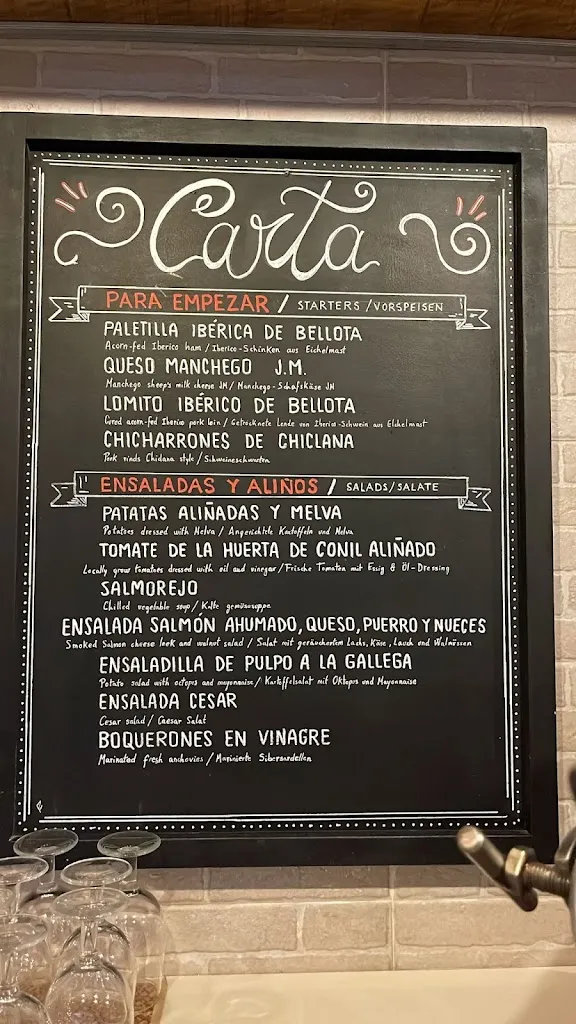 Carta
PARA EMPEZAR / STARTERS / VORSPEISEN
PALETILLA IBÉRICA DE BELLOTA
Acorn-fed Iberico ham / Iberico-Schinken aus Eichelmast
QUESO MANCHEGO J.M.
Manchego sheep's milk cheese JM / Manchego-Schafskäse JM
LOMITO IBÉRICO DE BELLOTA
Cured acorn-fed Iberico pork loin / Getrocknete Lende von Iberico-Schwein aus Eichelmast
CHICHARRONES DE CHICLANA
Pork rinds Chiclana style / Schweineschwarten
ENSALADAS Y ALIÑOS / SALADS/SALATE
PATATAS ALIÑADAS Y MELVA
Potatoes dressed with Melva / Angerichtete Kartoffeln und Melva
TOMATE DE LA HUERTA DE CONIL ALIÑADO
Locally grow tomatoes dressed with oil and vinegar / Frische Tomaten mit Essig & Öl-Dressing
SALMOREJO
Chilled vegetable soup / Kalte gemüsesuppe
ENSALADA SALMÓN AHUMADO, QUESO, PUERRO Y NUECES
Smoked Salmon cheese leek and walnut salad / Salat mit geräuchertem Lachs, Käse, Lauch und Walnüssen
ENSALADILLA DE PULPO A LA GALLEGA
Potato salad with octopus and mayonnaise / Kartoffelsalat mit Oktopus und Mayonnaise
ENSALADA CESAR
Cesar salad / Caesar Salat
BOQUERONES EN VINAGRE
Marinated fresh anchovies / Marinierte Silbersardellen